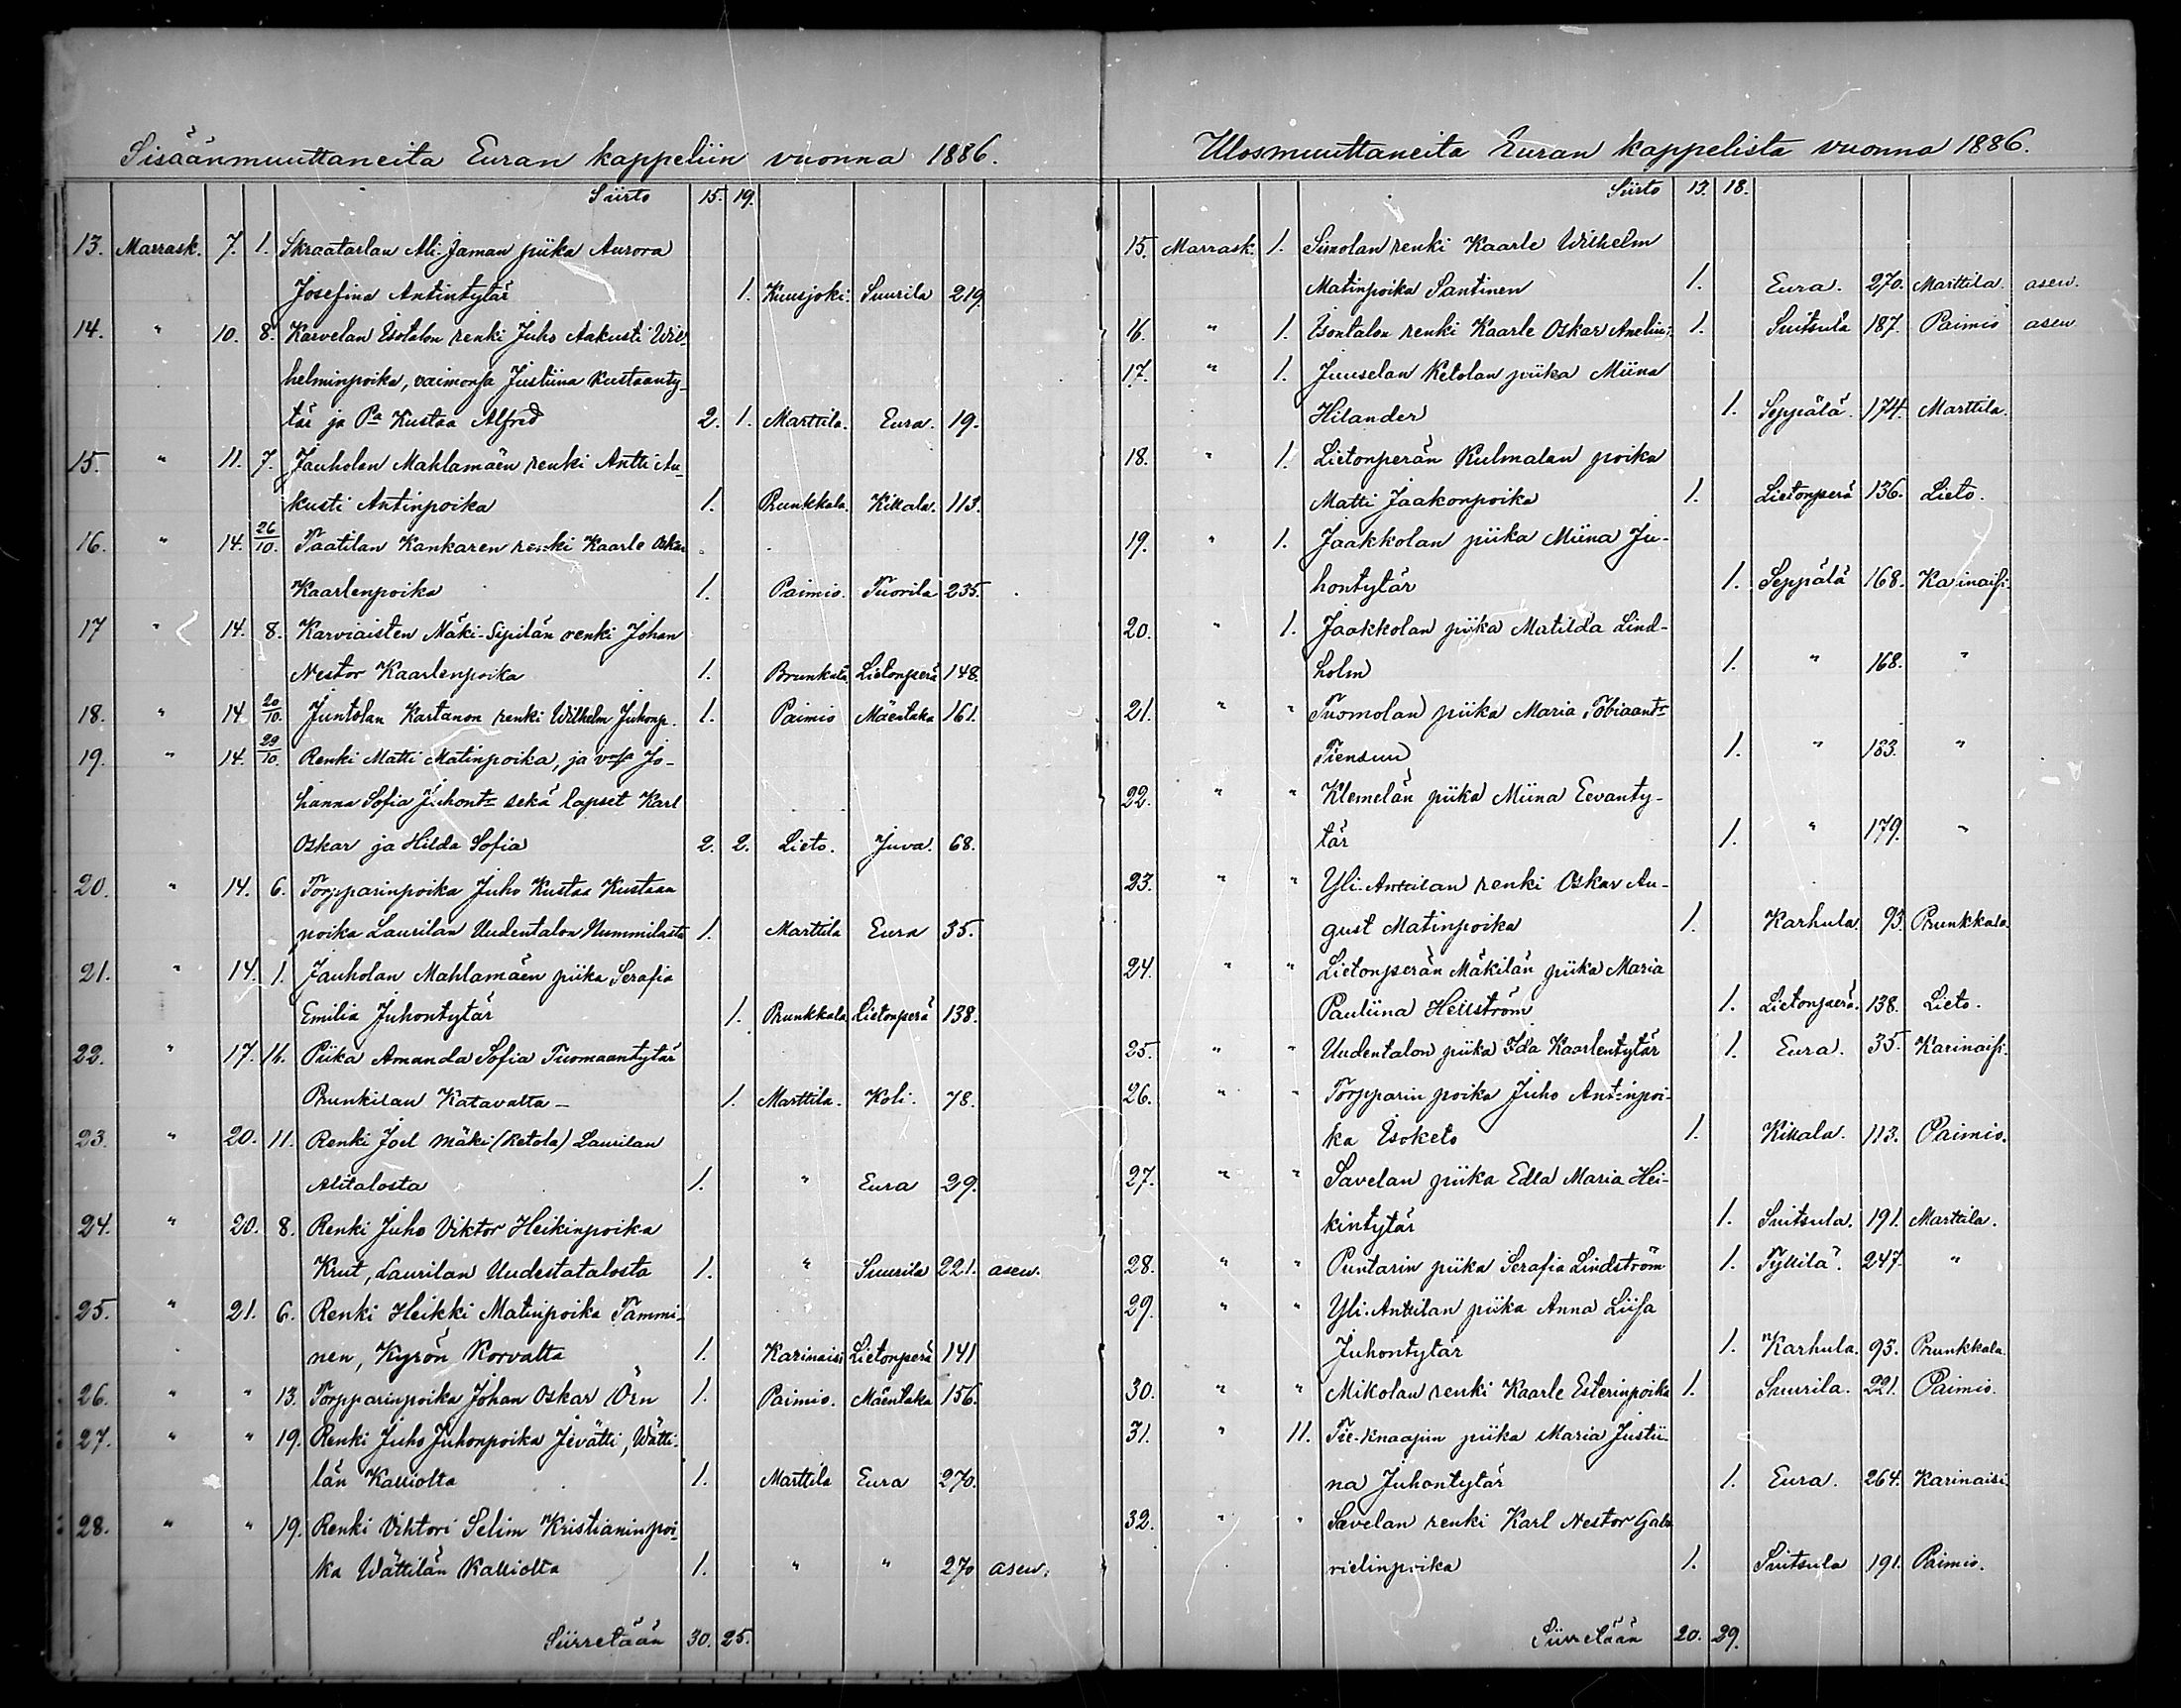 Sisäänmuuttaneita Euran kappeliin vuonna 1886.
Siirto 15. 19.
13. Marrask. 7. 1. Skraatarlan Ali-Jaman piika Aurora
Josefina Antintytär 1. Kuusjoki. Suurila 219
14. " 10. 8. Karvelan Isotalon renki Juho Aakusti Wil-
helminpoika, vaimonsa Justiina Kustaanty-
tär ja Pa Kustaa Alfred 2. 1. Marttila. Eura. 19.
15. " 11. 7. Jauholan Mahlamäen renki Antti Au-
kusti Antinpoika 1. Prunkkala. Killala. 113.
16. " 14. 26/10. Taatilan Kankaren renki Kaarle Oskar
Kaarlenpoika 1. Paimio. Tuorila 235.
17 " 14. 8. Karviaisten Mäki-Sipilän renki Johan
Nestor Kaarlenpoika 1. Brunkala Lietonperä 148.
18. " 14 20/10. Juntolan Kartanon renki Wilhelm Juhonp. 1. Paimio Mäentaka 161.
19. " 14. 29/10. Renki Matti Matinpoika, ja vmsa Jo-
hanna Sofia Juhont. sekä lapset Karl
Oskar ja Hilda Sofia 2. 2. Lieto. Juva. 68.
20. " 14. 6. Torpparinpoika Juho Kustaa Kustaan
poika Laurilan Uudentalon Nummilasta 1. Marttila Eura 35.
21. " 14. 1. Jauholan Mahlamäen piika Serafia
Emilia Juhontytär 1. Prunkkala Lietonperä 138.
22. " 17. 16. Piika Amanda Sofia Tuomaantytär
Prunkilan Katavalta – 1. Marttila. Koli. 78.
23. " 20. 11. Renki Joel Mäki (Ketola) Laurilan
Alitalosta 1. " Eura 29.
24. " 20. 8. Renki Juho Viktor Heikinpoika
Krut, Laurilan Uudestatalosta 1. " Suurila 221. asew.
25. " 21. 6. Renki Heikki Matinpoika Tammi-
nen, Kyrön Korvalta 1. Karinaisi Lietonperä 141
26. " " 13. Torpparinpoika Johan Oskar Örn 1. Paimio. Mäentaka 156.
27. " " 19. Renki Juho Juhonpoika Jevätti, Wätti-
län Kalliolta 1. Marttila Eura 270.
28. " " 19. Renki Vihtori Selim Kristianinpoi-
ka Wättilän Kalliolta 1. " " 270 asew.
Siirretään 30. 25.
Ulosmuuttaneita Euran kappelista vuonna 1886.
Siirto 13. 18.
15. Marrask. 1. Simolan renki Kaarle Wilhelm
Matinpoika Santinen 1. Eura. 270. Marttila. asew.
16. " 1. Isontalon renki Kaarle Oskar Anelin 1. Suitsula 187. Paimio asew
17. " 1. Juuselan Ketolan piika Miina
Hilander 1. Seppälä. 174. Marttila.
18. " 1. Lietonperän Kulmalan poika
Matti Jaakonpoika 1. Lietonperä 136. Lieto.
19. " 1. Jaakkolan piika Miina Ju-
hontytär 1. Seppälä 168. Karinaisi.
20. " 1. Jaakkolan piika Matilda Lind-
holm 1. " 168. "
21. " " Tuomolan piika Maria Tobiaant.
Tiensuu 1. " 183. "
22. " " Klemelän piika Miina Eevanty-
tär 1. " 179. "
23. " " Yli-Anttilan renki Oskar Au-
gust Matinpoika 1. Karhula 93. Prunkkala
24. " " Lietonperän Mäkilän piika Maria
Pauliina Hellström 1. Lietonperä. 138. Lieto.
25. " " Uudentalon piika Ida Kaarlentytär 1. Eura. 35. Karinaisi.
26. " " Torpparin poika Juho Antinpoi-
ka Isoketo 1. Killala. 113. Paimio.
27. " " Savelan piika Edla Maria Hei-
kintytär 1. Suitsula. 191. Marttila.
28. " " Puntarin piika Serafia Lindström 1. Tyllilä. 247. "
29. " " Yli-Anttilan piika Anna Liisa
Juhontytär 1. Karhula. 93. Prunkkala
30. " " Mikolan renki Kaarle Esterinpoika 1. Suurila. 221. Paimio.
31. " 11. Tie-Knaapin piika Maria Justii-
na Juhontytär 1. Eura. 264. Karinaisi.
32. " " Savelan renki Karl Nestor Gab-
rielinpoika 1. Suitsula 191. Paimio.
Siirretään 20. 29.